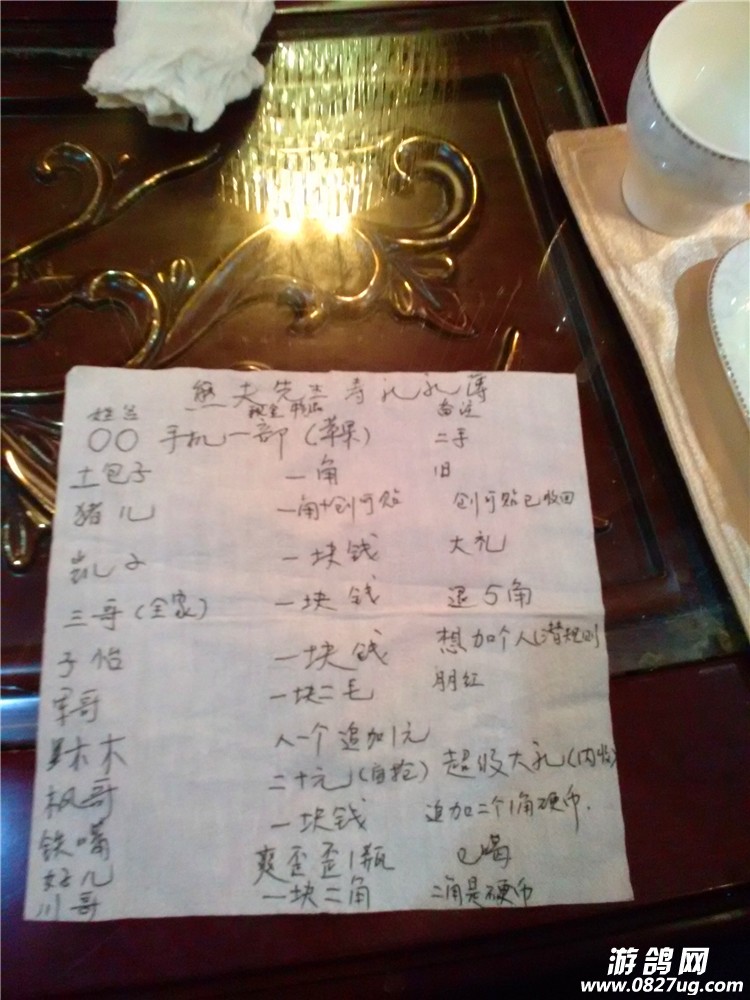 熊夫先生寿礼礼薄
姓名 现金 物品 备注
〇〇 手机一部(苹果) 二手
土包子 一角 旧
猪儿 一角+创可贴 创可贴已收回
凯子 一块钱 大礼
三哥(全家) 一块钱 退5角
子怡 一块钱 想加个人(潜规则
军哥 一块二毛 朋红
木木 人一个 追加1元
枫哥 二十元(自抢) 超级大礼(内
铁嘴 一块钱 追加二个1角硬币.
好儿 爽歪歪1瓶 已喝
川哥 一块二角 二角是硬币
游鸽网
www.0827ug.com